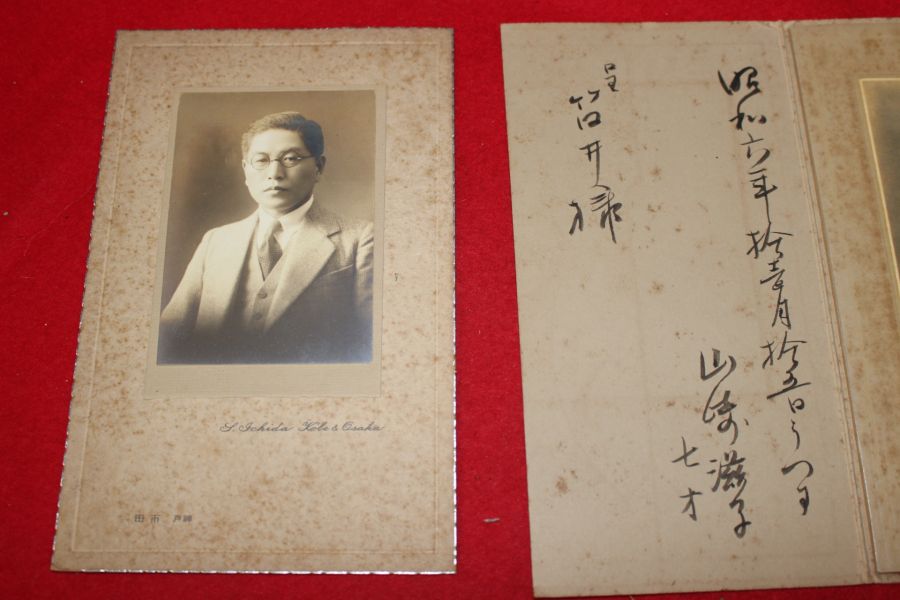 S. Ichida Kobe & Osaka
神戸 市田
昭和六年拾壱月拾五日うつす
山崎滋子
七才
呈
筒井様